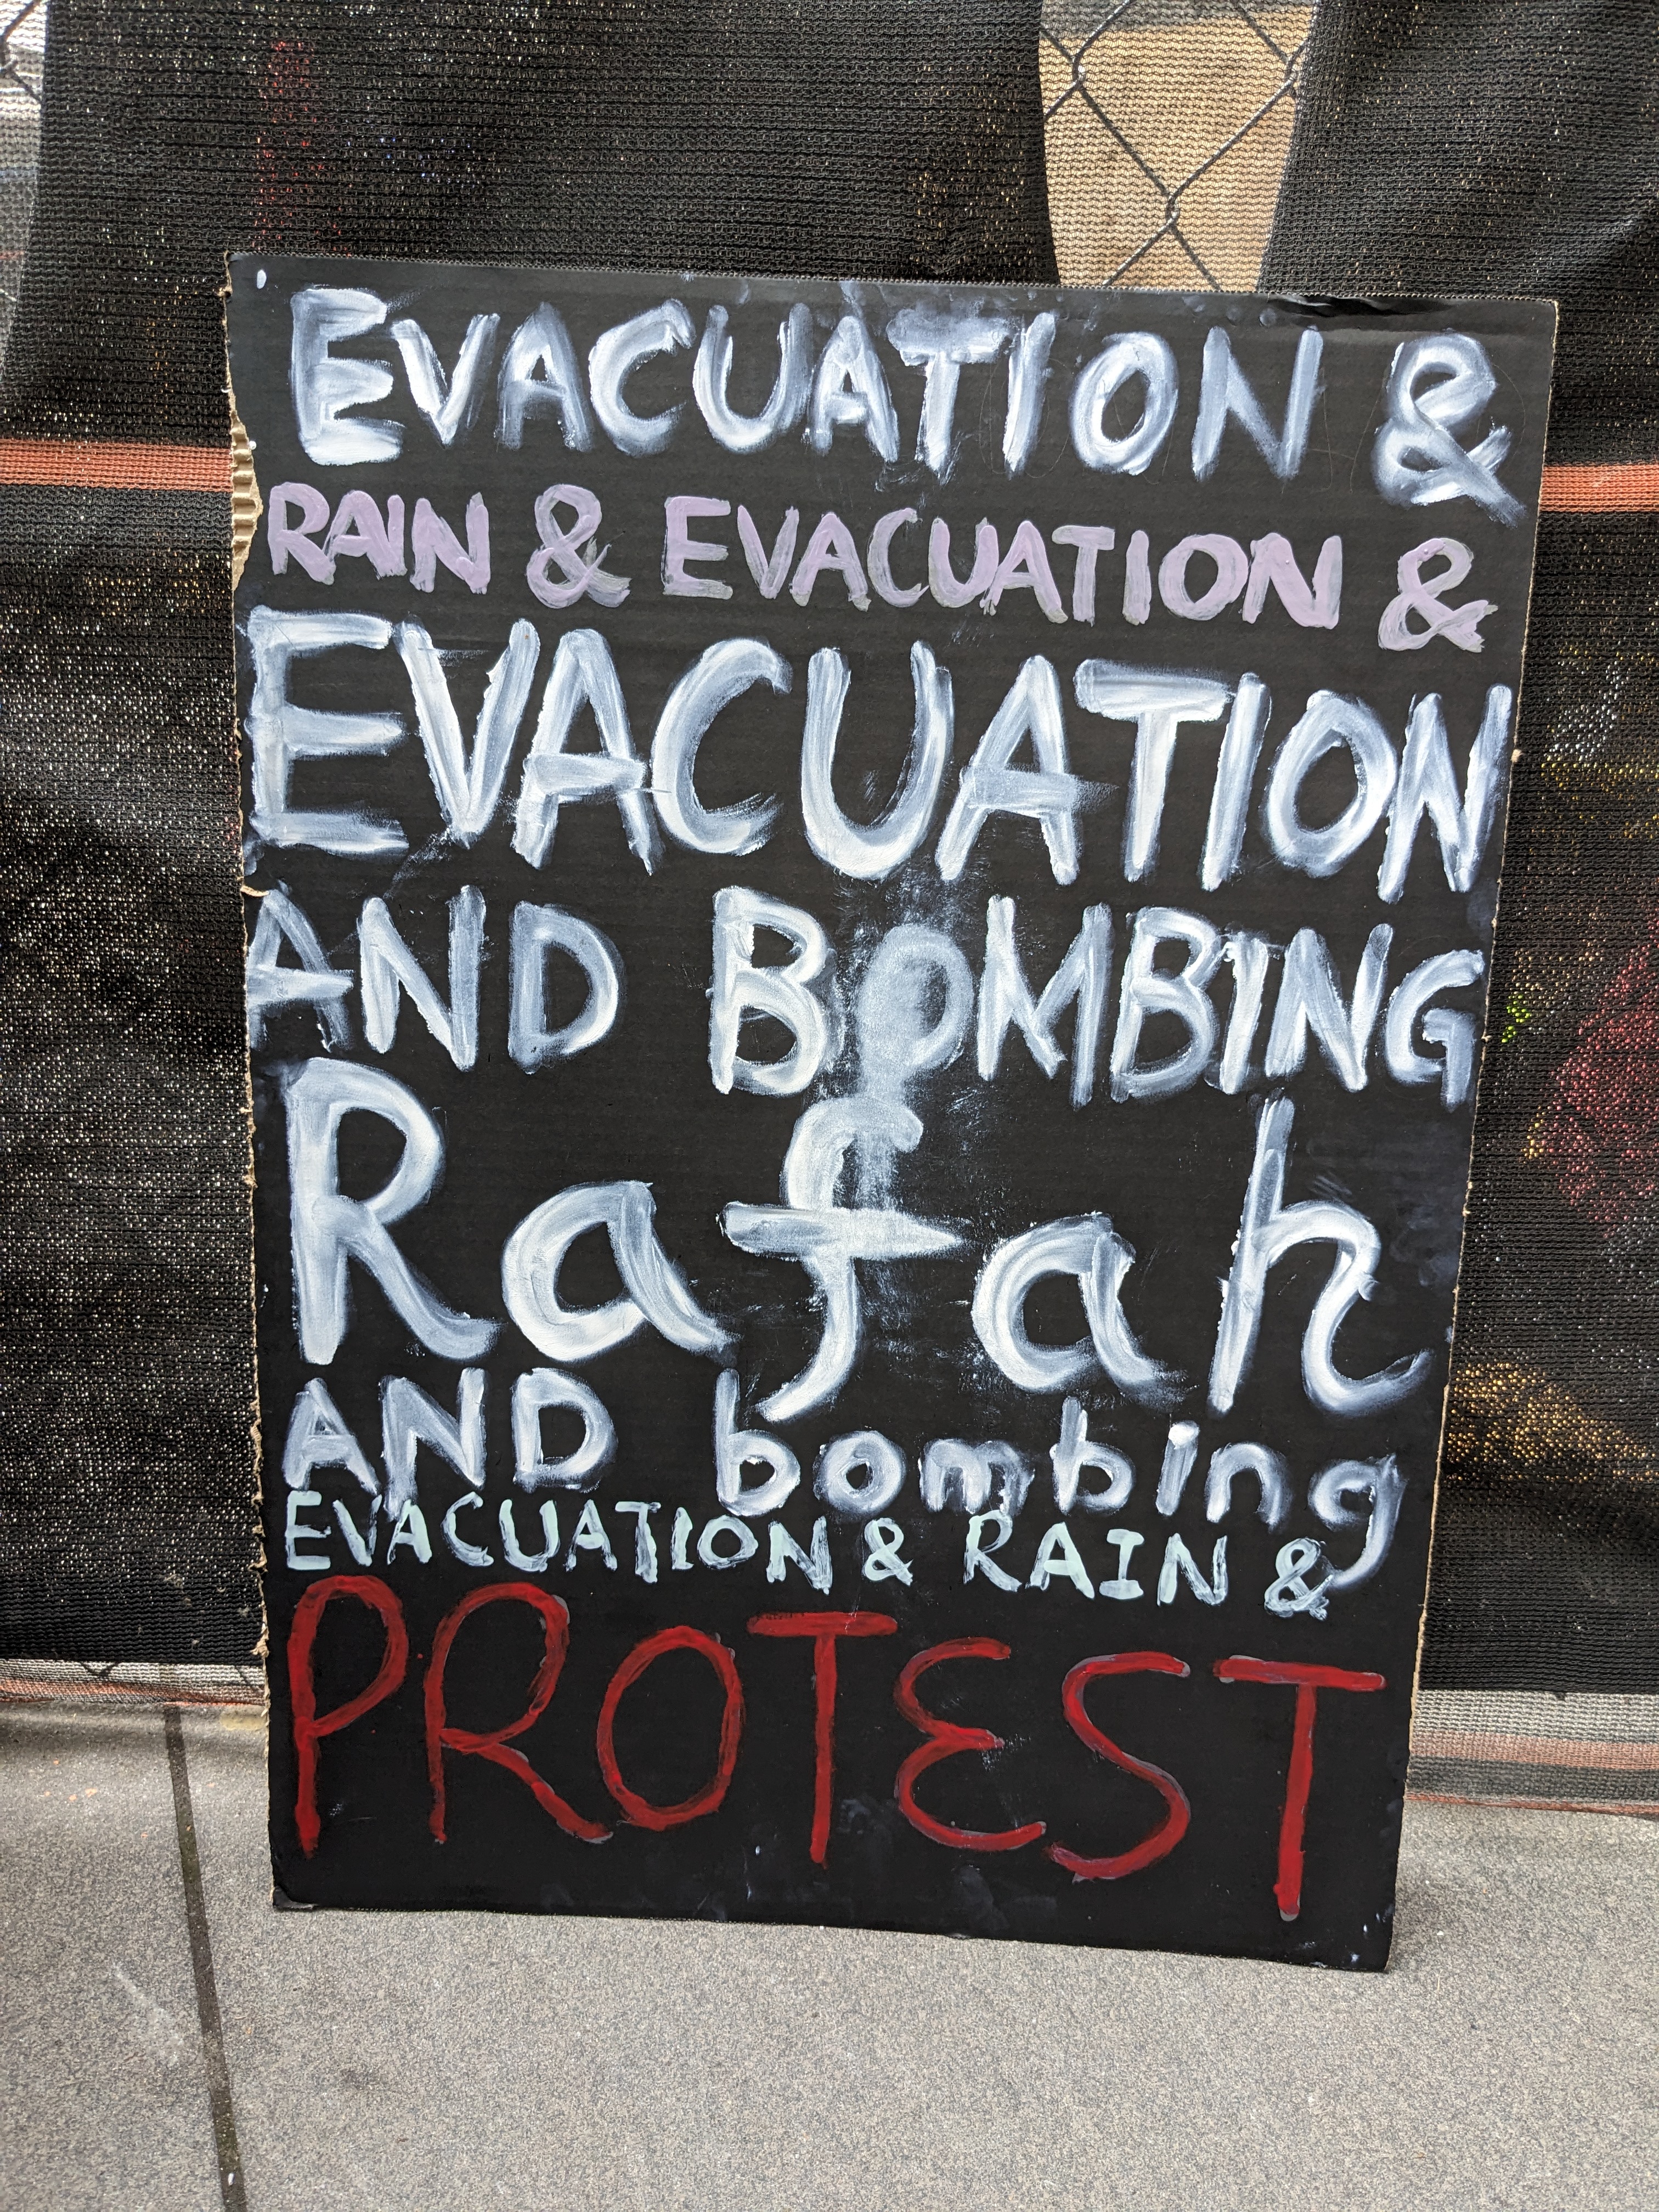 EVACUATION &
RAIN & EVACUATION &
EVACUATION
AND BOMBING
Rafah
AND bombing
EVACUATION & RAIN &
PROTEST